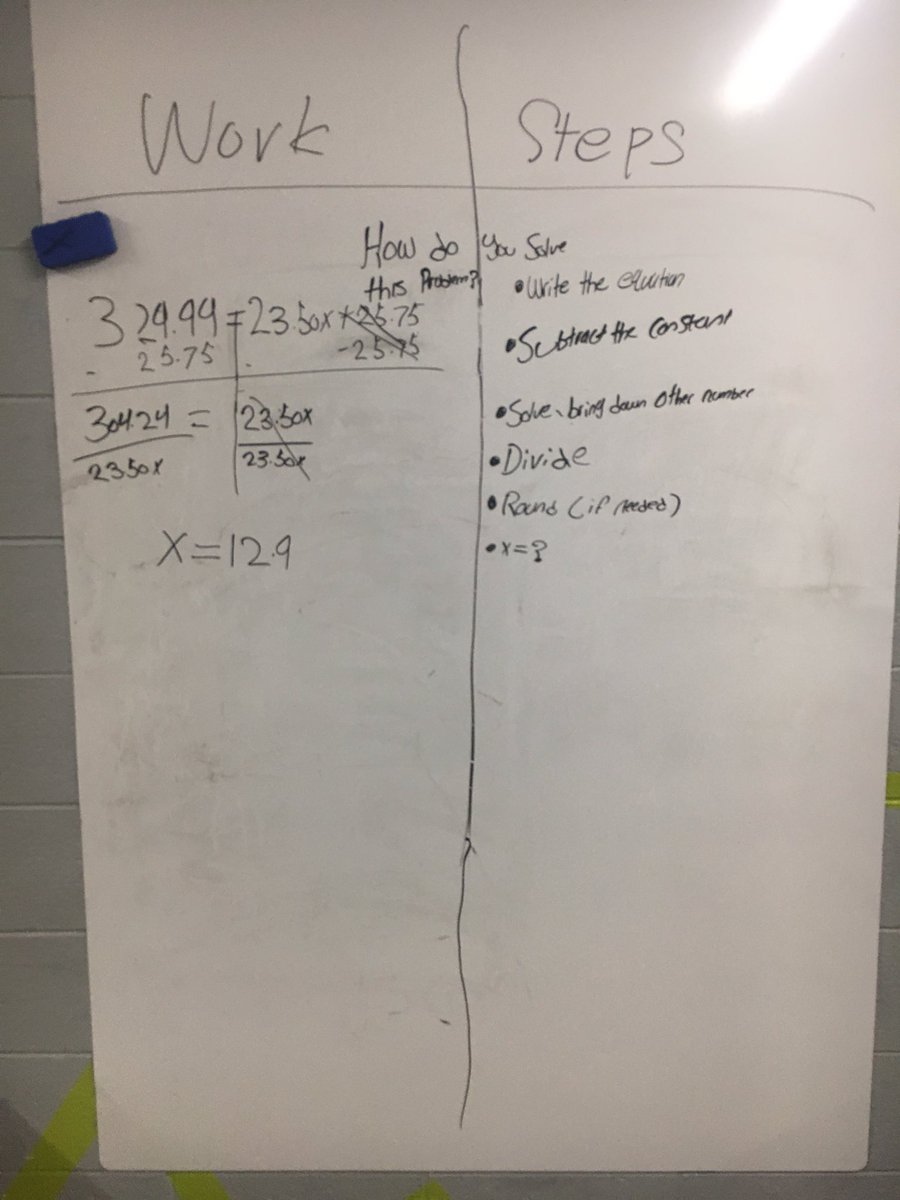 Work
Steps
How do you solve
this Problem?
329.99 = 23.50x + 25.75
- 25.75 - 25.75
304.24 = 23.50x
23.50x 23.50x
x = 12.9
• Write the equation
• Subtract the constant
• Solve, bring down other number
• Divide
• Round (if needed)
• x = ?